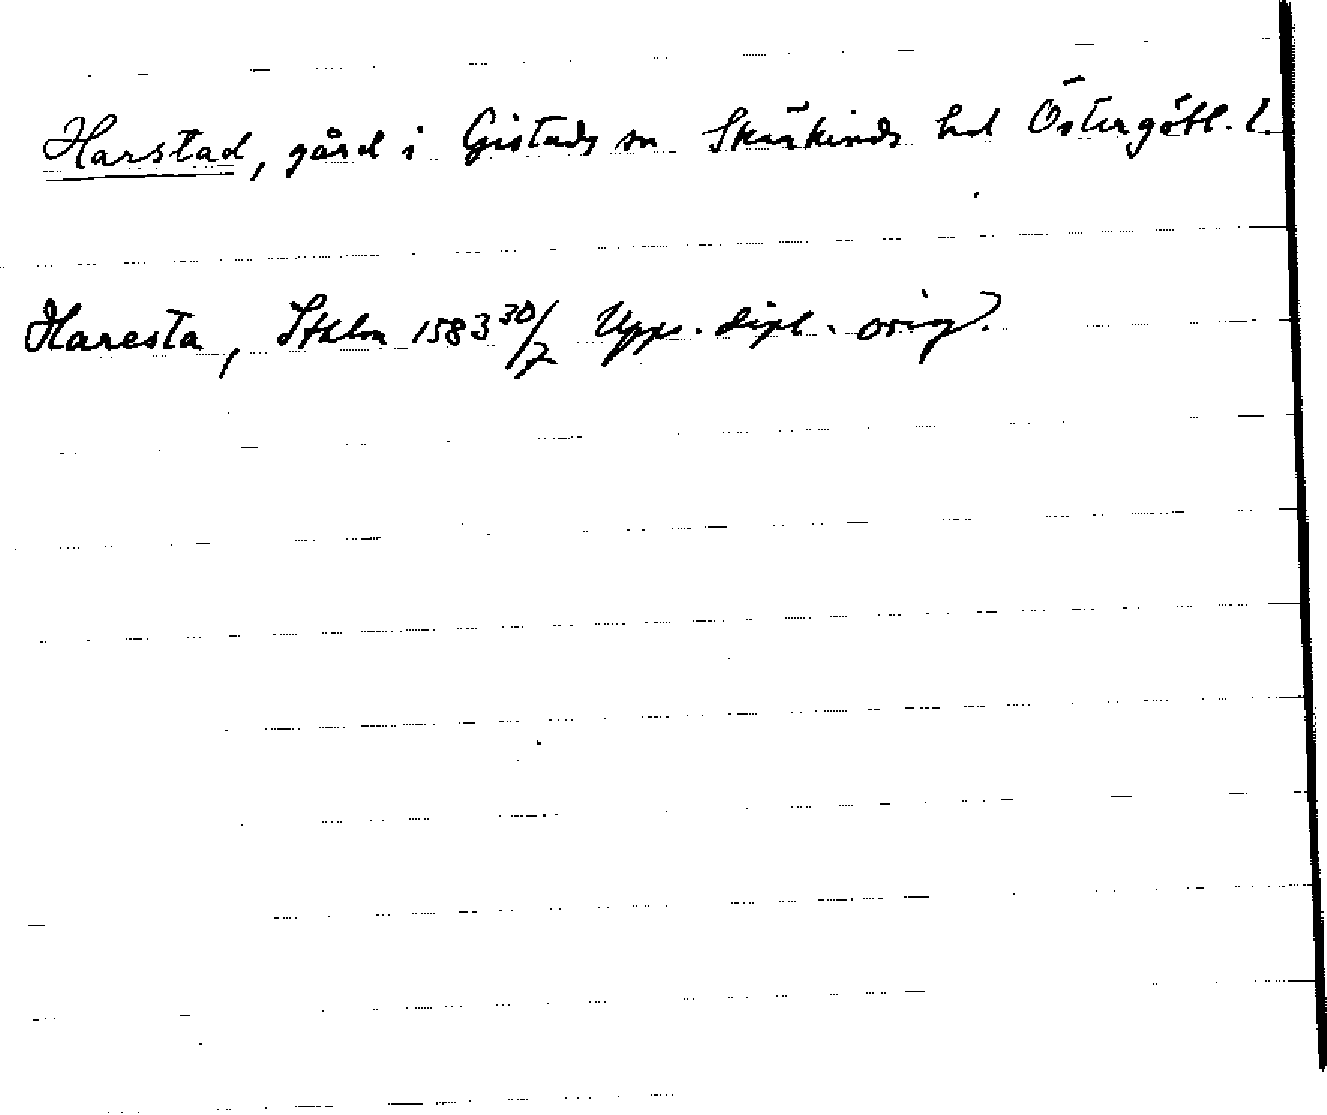 Harstad, gård i Gistads sn Skärkinds hd Östergötl. l.
Haresta, Sthlm 1583 30/7 Upps. dipl. orig.